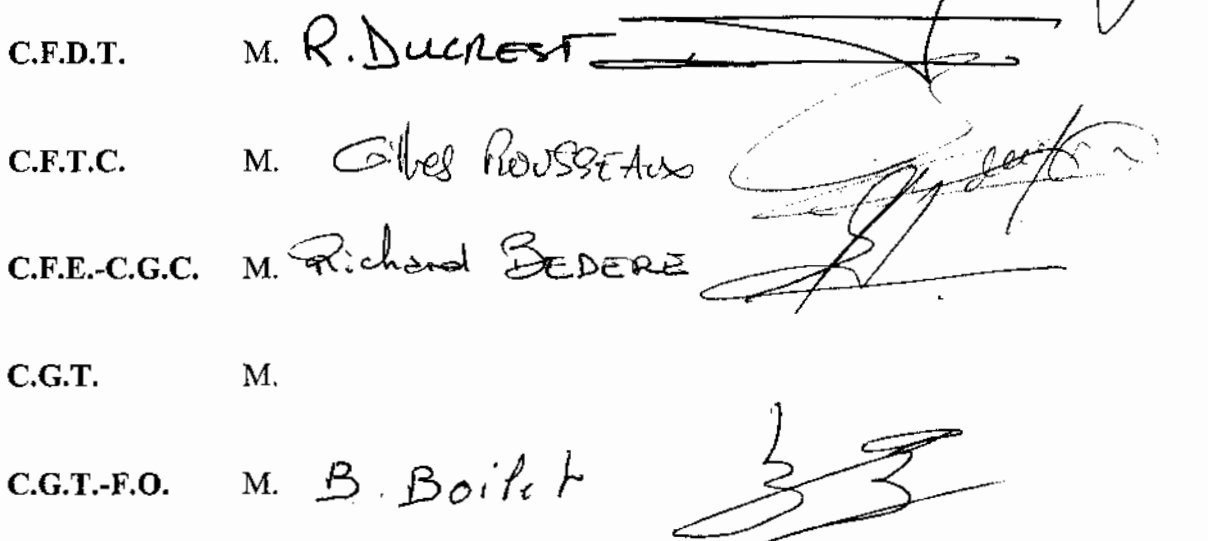 C.F.D.T. M. R. DUCREST
C.F.T.C. M. Gilles ROUSSEAUX
C.F.E.-C.G.C. M. Richard BEDERE
C.G.T. M.
C.G.T.-F.O. M. B. Boilet